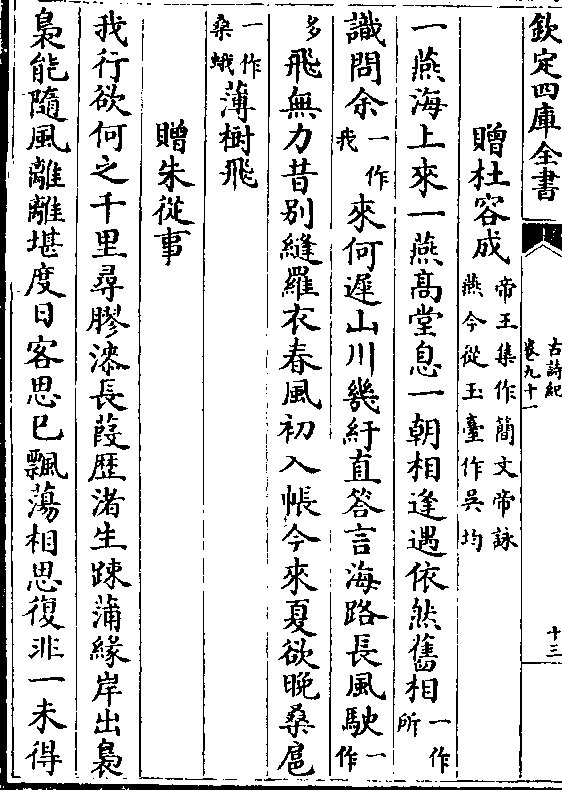 欽定四庫全書
古詩紀
卷九十一
十三
贈杜容成 帝王集作簡文帝詠燕今從玉臺作吳均
一燕海上來一燕髙堂息一朝相逢遇依然舊相 一作所
識問余 一作我 來何遲山川幾紆直答言海路長風駛 一作
多 飛無力昔別縫羅衣春風初入帳今來夏欲晚桑扈
一作桑蛾 薄樹飛
贈朱從事
我行欲何之千里尋膠漆長葭歴渚生踈蒲緣岸出裊
裊能隨風離離堪度日客思已飄蕩相思復非一未得